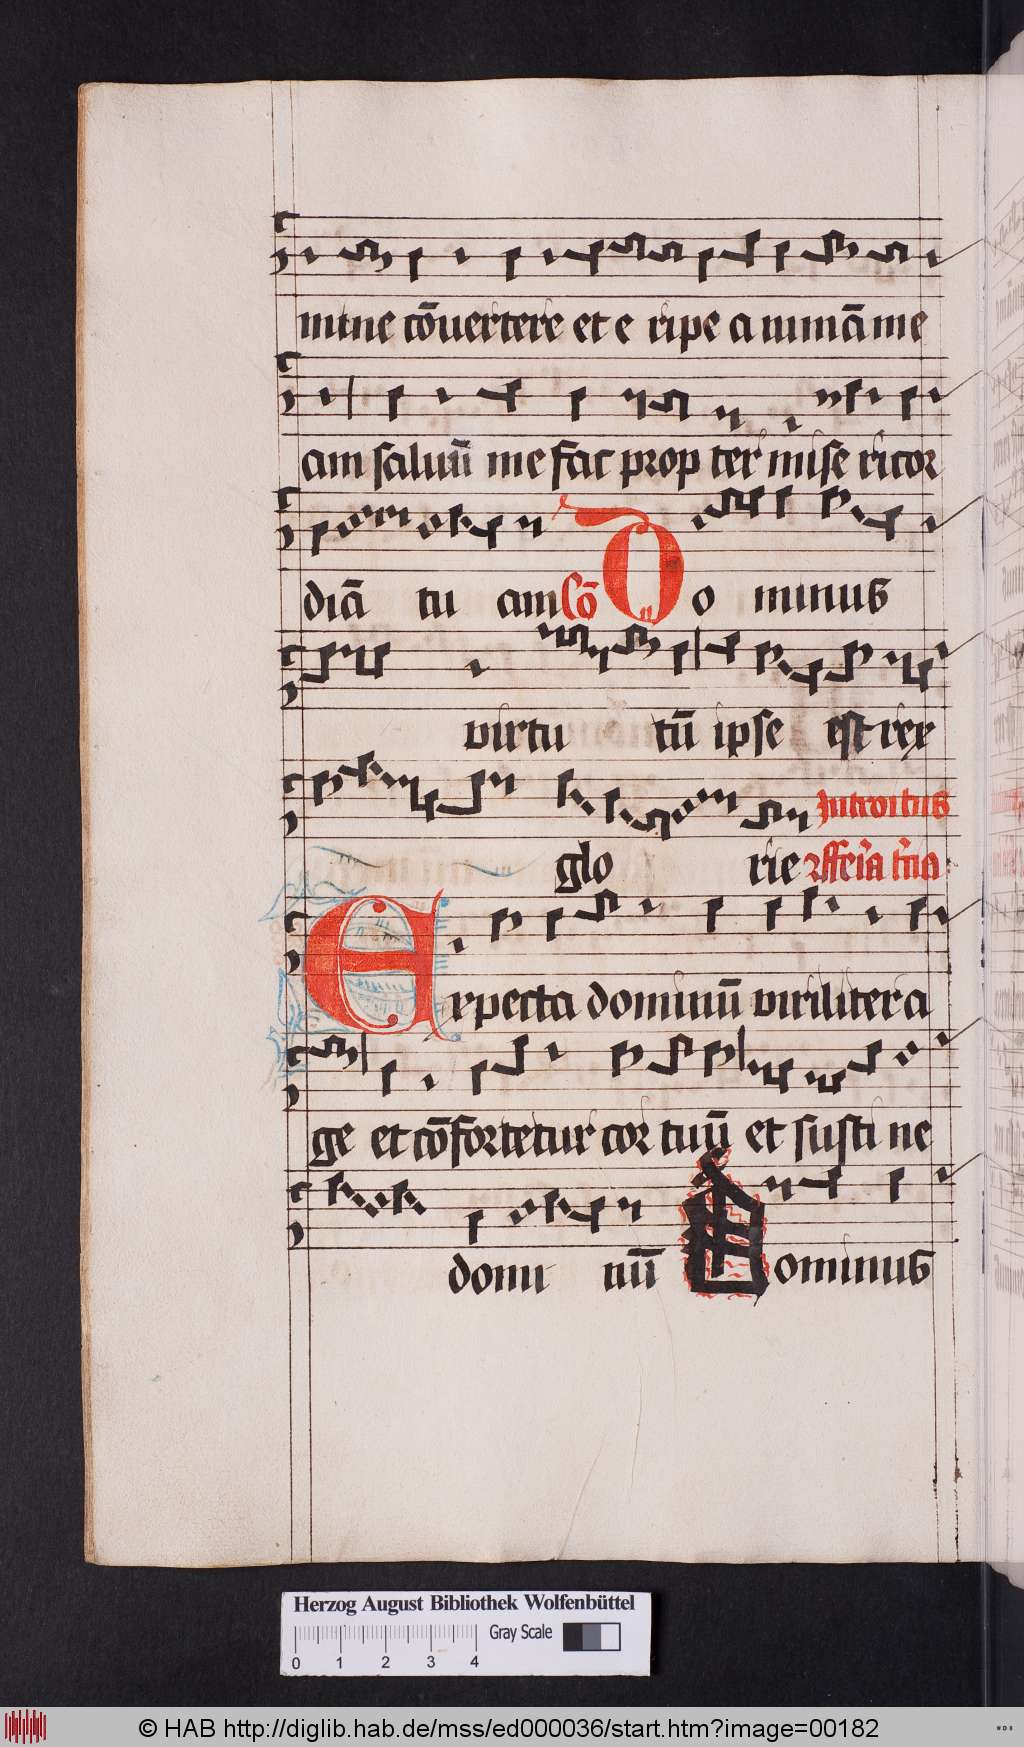 mine cōuertere et e ripe a nimā me
am saluū me fac prop ter mise ricor
diā tu am Cō Do minus
virtu tū ipse est rex
glo rie Introitus
feria
Expecta dominū viriliter a
ge et cōfortetur cor tuū et susti ne
domi nū Dominus
Herzog August Bibliothek Wolfenbüttel
Gray Scale
0 1 2 3 4
© HAB http://diglib.hab.de/mss/ed000036/start.htm?image=00182